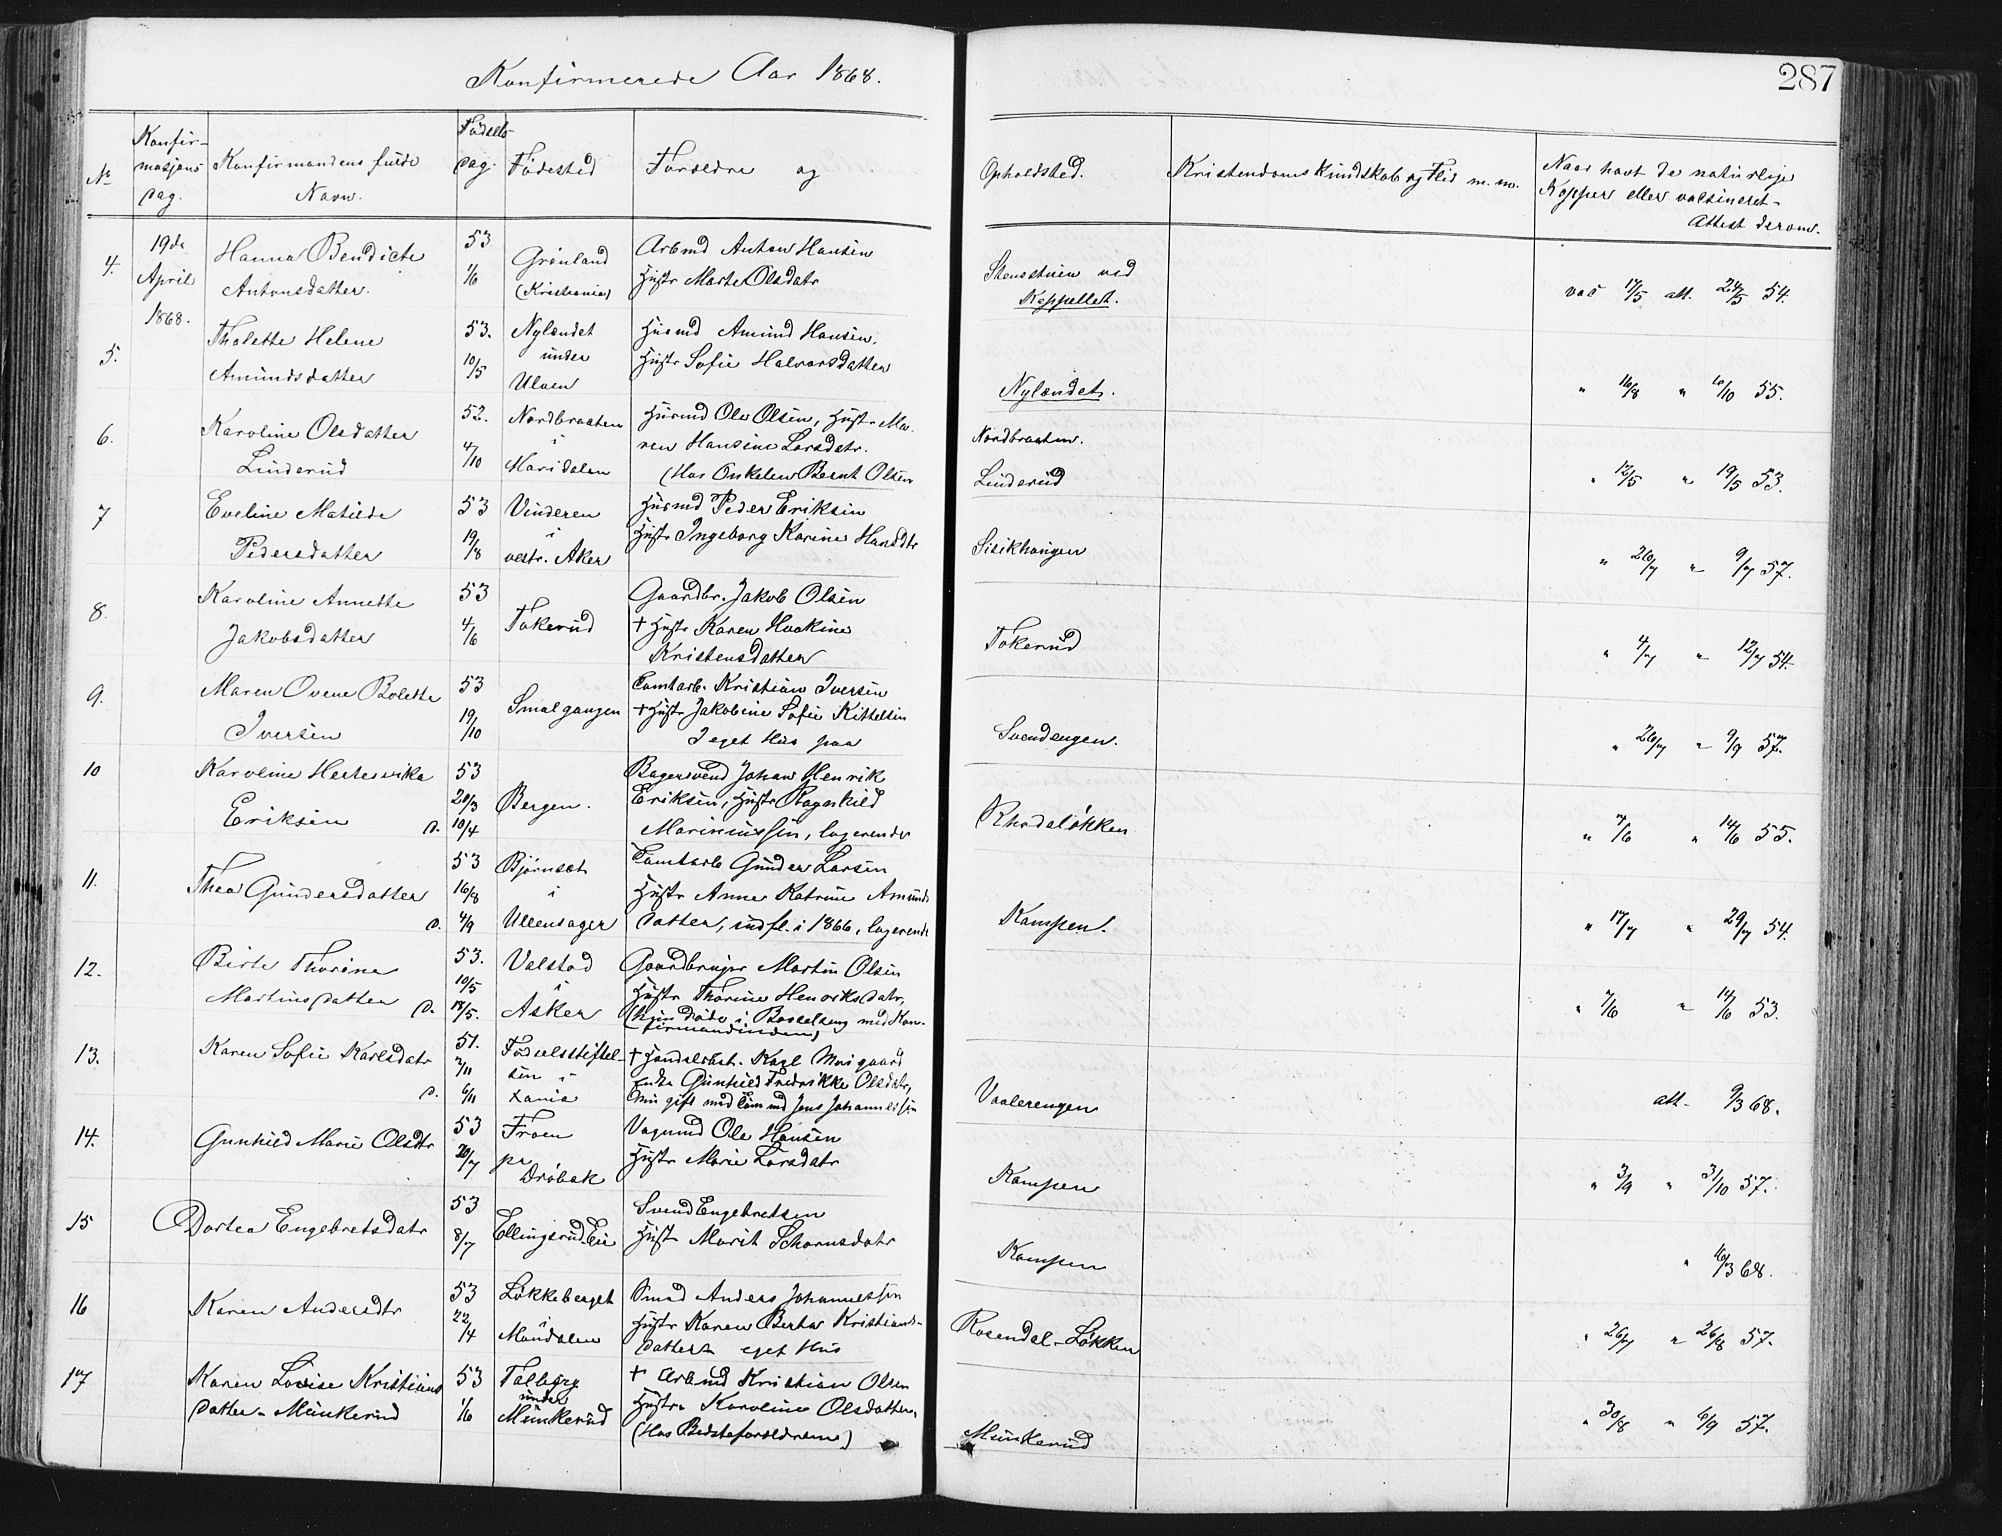 Konfirmerede Aar 1868.
287
№
Konfir-
masjons
dag.
Konfirmandens fulde
Navn.
Fødsels-
dag.
Fødested
Forældre og
Opholdsted.
Kristendoms Kundskab og Flid m.m.
Naar havt de naturlige
Kopper eller vaksineret-
Attest derom.
4.
19de
April
1868.
Hanna Bendicte
Antonsdatter.
53
1/6
Grønland
(Kristiania)
Arbmd Anton Hansen
Hustr Marte Olsdatr
Stensstuen ved
Kappellet.
vac 17/5 att. 24/5 54.
5.
Tholette Helene
Amundsdatter
53.
10/5
Nylændet
under
Ulven
Husmd Amund Hansen,
Hustr Sofie Halvorsdatter
Nylændet.
" 16/8 " 6/10 55.
6.
Karoline Olsdatter
Linderud
52.
4/10
Nordbraaten
i
Maridalen
Husmd Ole Olsen, Hustr Ma-
ren Hansine Larsdatr.
(Hos Onkelen Bernt Olsen
Nordbraaten.
Linderud
" 12/5 " 19/5 53.
7
Eveline Matilde
Pedersdatter
53
19/8
Vinderen
i
vestr. Aker
Husmd Peder Eriksen
Hustr Ingeborg Karine Hansdtr
Sisikhaugen
" 20/7 " 9/7 57.
8.
Karoline Annette
Jakobsdatter
53
4/6
Tokerud
Gaardbr. Jakob Olsen
+ Hustr Karen Haakine
Kristensdatter
Tokerud
" 4/7 " 12/7 54.
9.
Maren Ovene Bolette
Iversen
53
19/10
Smalgangen
Tomtarb. Kristian Iversen
+ Hustr Jakobine Sofie Kittelsen
I eget Hus paa
Svendengen.
" 20/7 " 9/9 57.
10
Karoline
Eriksen
53
20/3
d. 10/4
Bergen.
Bagersvend Johan Henrik
Eriksen, Hustr Ragnhild
Mariniussen, logerende
Rhodeløkken
" 7/6 " 14/6 55.
11.
Thea Gundersdatter
53
16/8
d. 4/9
Bjørnset
i
Ullensager
Tomtarb Gunder Larsen
Hustr Anne Katrine Amunds
datter, indfl. i 1866, logerende
Kampen.
" 17/7 " 29/7 54.
12.
Birte Thorine
Martinsdatter
53.
10/5
d. 18/5.
Valstad
i
Asker
Gaardbruger Martin Olsen
Hustr Thorine Henriksdatr,
(hun døde i Barselseng med Kon-
firmandinden)
" 7/6 " 14/6 53.
13.
Karen Sofie Karlsdatr
51.
2/11
d. 6/11
Fødselsstiftel-
sen i
Xania
+ Handelsbet. Karl
Enke Gunhild Fredrikke Olsdatr,
nu gift med Tømmd Jens Johannessen
Vaalerengen
att. 9/3 68.
14.
Gunhild Marie Olsdtr
53
20/7
Froen
pr
Drøbak
Vognmd Ole Hansen
Hustr Marie Larsdatr
Kampen
" 3/9 " 31/10 57.
15
Dortea Engebretsdatr
53
8/7
Ellingsrud Eie
Svend Engebretsen
Hustr Marit
Kampen
" 10/3 68.
16
Karen Andersdtr
53
22/4
Løkkeberget
i
Smed Anders Johannessen
Hustr Karen Berta Kristians-
datter eget Hus
Rosendal-Løkken
" 26/7 " 26/8 57.
17
Karen Lovise Kristians
datter- Munkerud
53
1/6
Tolberg
under
Munkerud
+ Arbmd Kristian Olsen
Hustr. Karoline Olsdatter,
(Hos Bedsteforældrene)
Munkerud
" 30/8 " 6/9 57.